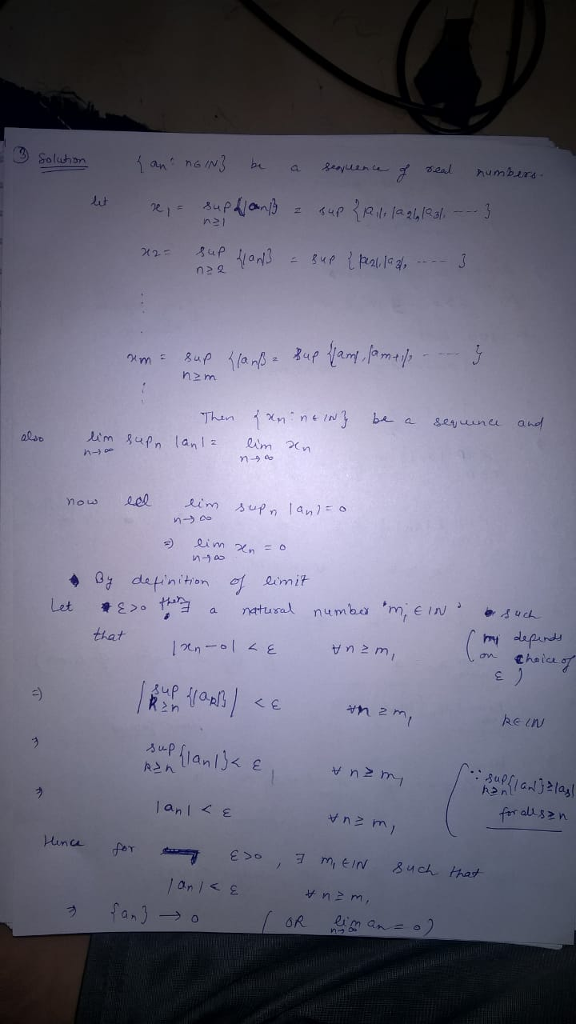 ③ Solution {an : n∈IN} be a sequence of real numbers.
let x1 = sup n≥1 {|an|} = sup {|a1|, |a2|, |a3|, ---- }
x2 = sup n≥2 {|an|} = sup {|a2|, |a3|, ---- }
xm = sup n≥m {|an|} = sup {|am|, |am+1|, ---- }
Then {xn : n∈IN} be a sequence and
also lim n→∞ supn |an| = lim n→∞ xn
now let lim n→∞ supn |an| = 0
⇒ lim n→∞ xn = 0
By definition of limit
Let ε>0 then ∃ a natural number 'm1 ∈ IN' such
that |xn - 0| < ε ∀n≥m1 (m1 depends on choice of ε)
⇒ |sup k≥n {|ak|}| < ε ∀n≥m1 k∈IN
⇒ sup k≥n {|an|} < ε, ∀n≥m1 (∵ sup n≥n {|an|} ≥ |as| for all s≥n
⇒ |an| < ε ∀n≥m1
Hence for ε>0, ∃ m1∈IN such that
|an| < ε ∀n≥m1
⇒ {an} → 0 (OR lim n→∞ an = 0)